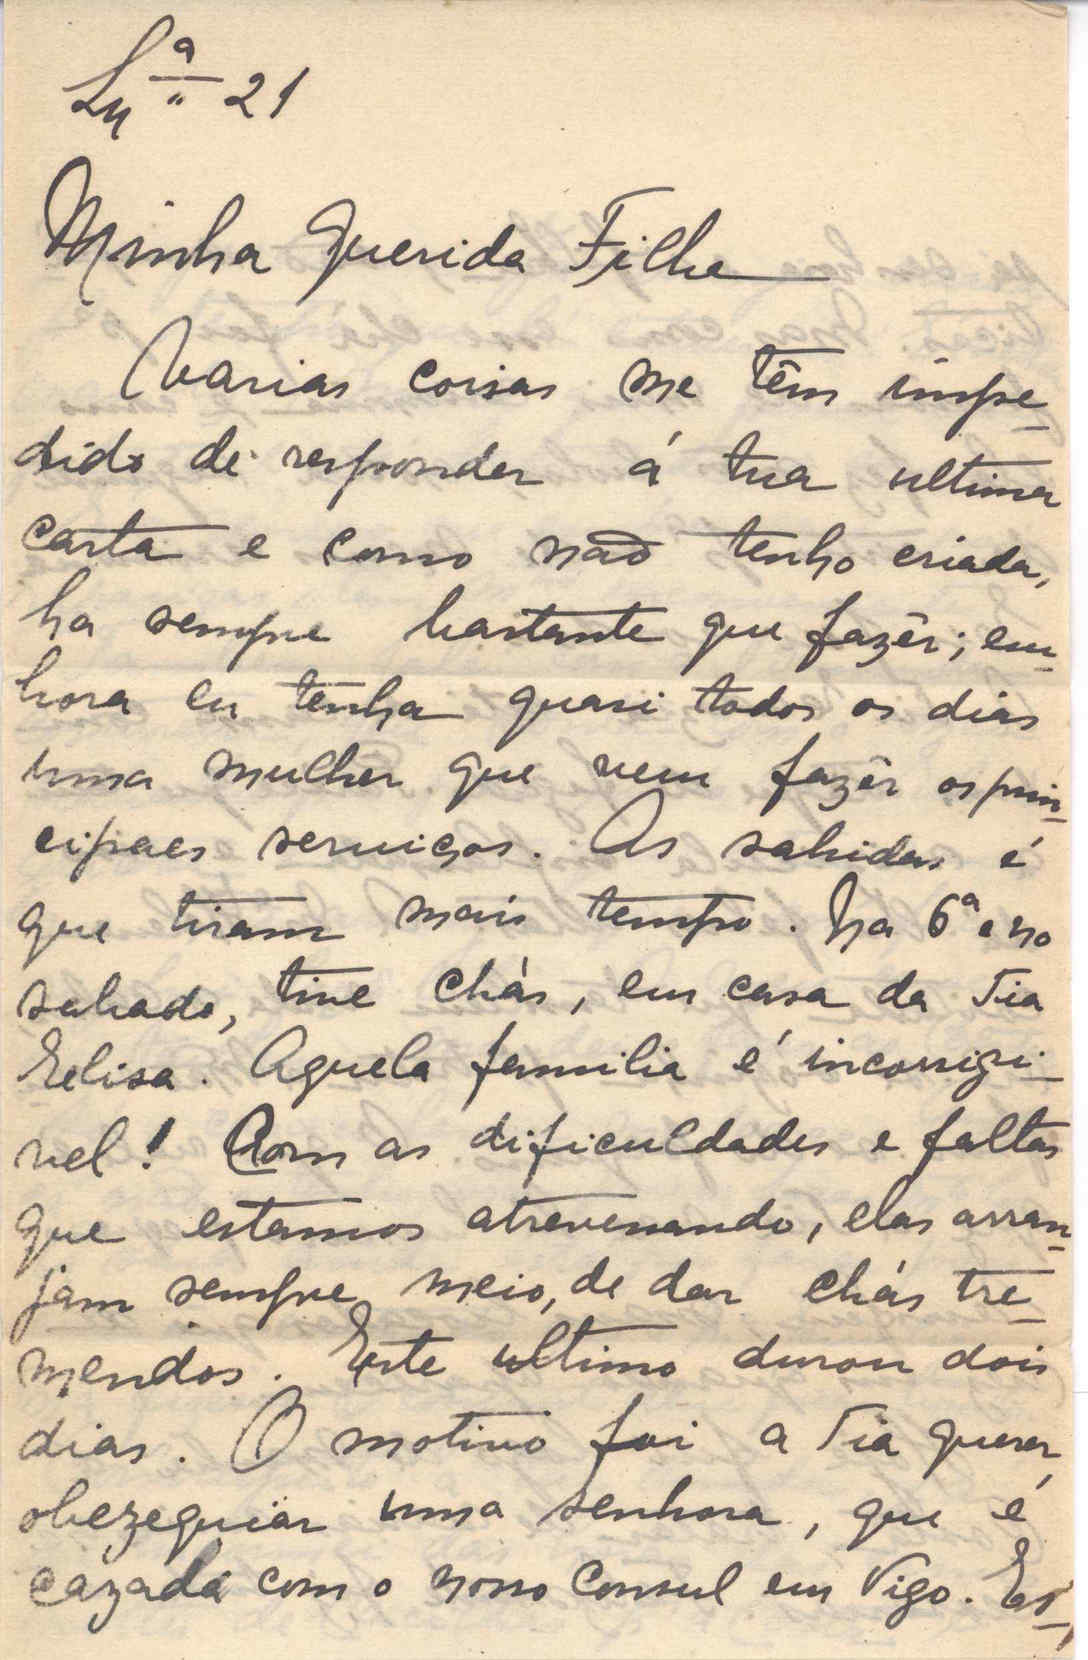 Lxª 21
Minha Querida Filha
Varias coisas me têm impe-
dido de responder á tua ultima
carta e como não tenho criada,
ha sempre bastante que fazêr; em-
bora eu tenha quasi todos os dias
uma mulher que vem fazêr os prin-
cipaes serviços. As sahidas é
que tiram mais tempo. Na 6ª e no
sabado, tive chás, em casa da Tia
Elisa. Aquela familia é incorrigi-
vel! Com as dificuldades e faltas
que estamos atrevessando, elas arran-
jam sempre meio, de dar chás tre-
mendos. Este ultimo durou dois
dias. O motivo foi a Tia querer
obezequiar uma senhora, que é
cazada com o nosso Consul em Vigo. Es-